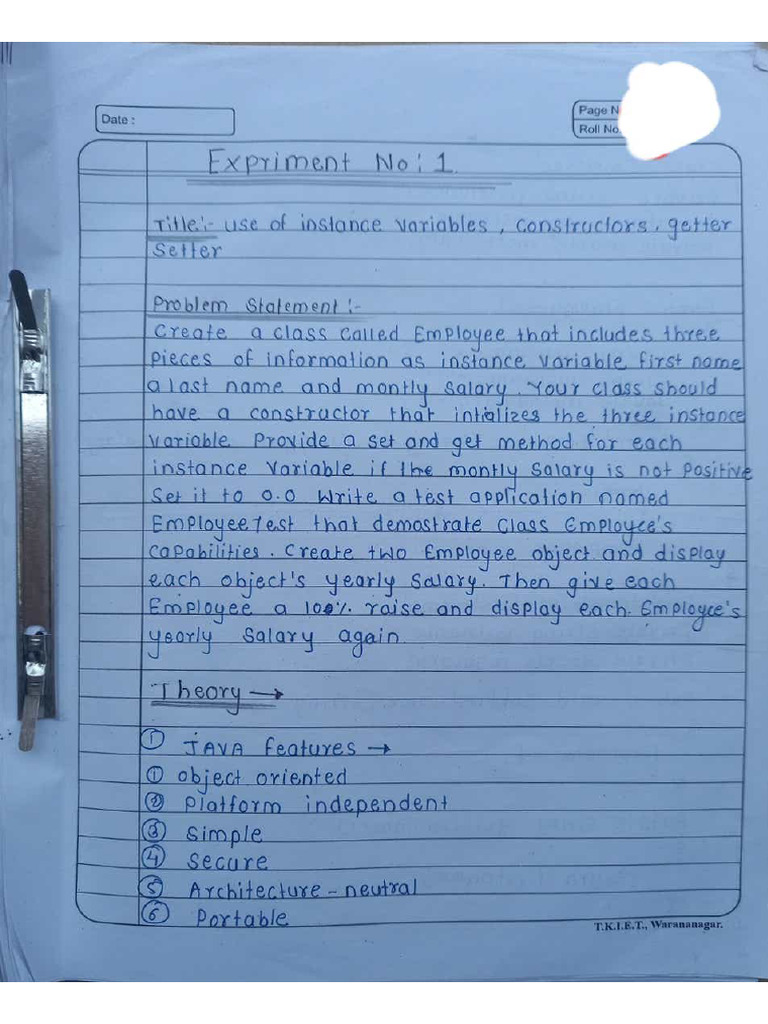 Date :
Page N
Roll No.
Expriment No: 1.
Title:- use of instance variables, constructors, getter
Setter
Problem Statement :-
Create a class called Employee that includes three
pieces of information as instance variable first name
a last name and montly salary. Your class should
have a constructor that intializes the three instance
variable. Provide a set and get method for each
instance variable if the montly salary is not positive
Set it to 0.0 Write a test application named
EmployeeTest that demostrate class Employee's
capabilities. Create two Employee object and display
each object's yearly salary. Then give each
Employee a 100% raise and display each Employee's
yearly salary again.
Theory →
① JAVA features →
① object oriented
② Platform independent
③ Simple
④ Secure
⑤ Architecture - neutral
⑥ Portable
T.K.I.E.T., Warananagar.